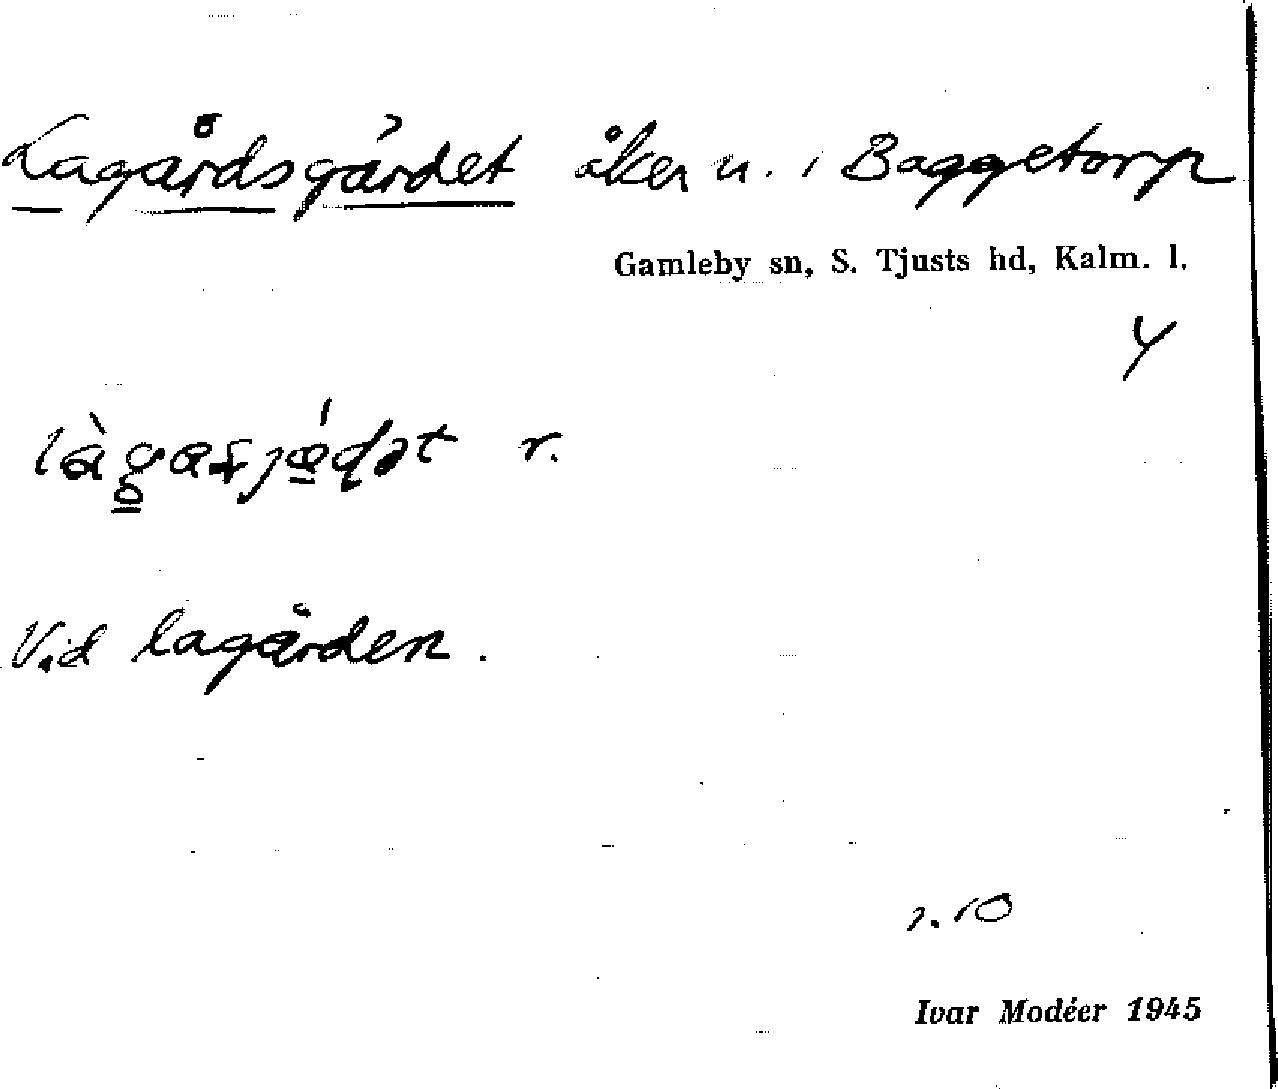 Lagårdsgärdet åker n. i Baggetorp
Gamleby sn, S. Tjusts hd, Kalm. l.
r.
Vid lagården.
1.10
Ivar Modéer 1945